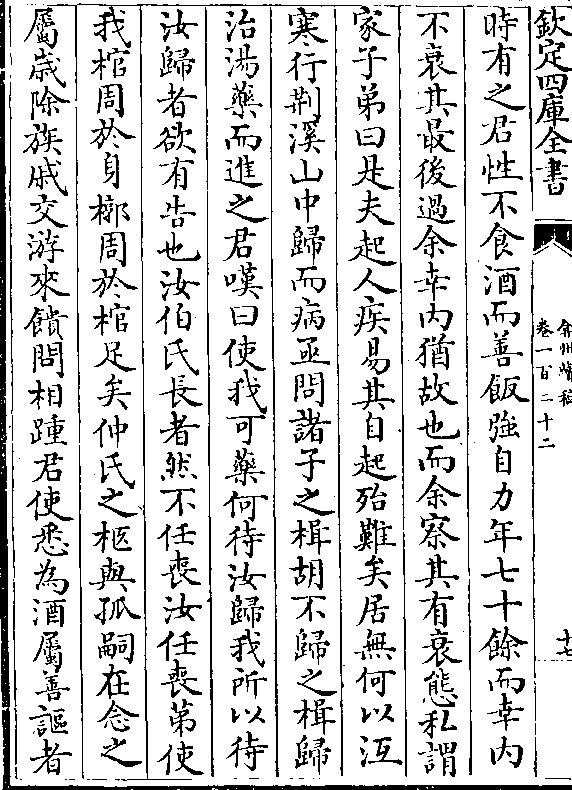 欽定四庫全書
弇州續稿
卷一百二十二
十七
時有之君性不食酒而善飯強自力年七十餘而幸内
不衰其最後過余幸内猶故也而余察其有衰態私謂
家子弟曰是夫起人疾易其自起殆難矣居無何以沍
寒行荆溪山中歸而病亟問諸子之楫胡不歸之楫歸
治湯藥而進之君嘆曰使我可藥何待汝歸我所以待
汝歸者欲有告也汝伯氏長者然不任喪汝任喪第使
我棺周於身槨周於棺足矣仲氏之柩與孤嗣在念之
屬歲除族戚交游來饋問相踵君使悉為酒屬善謳者